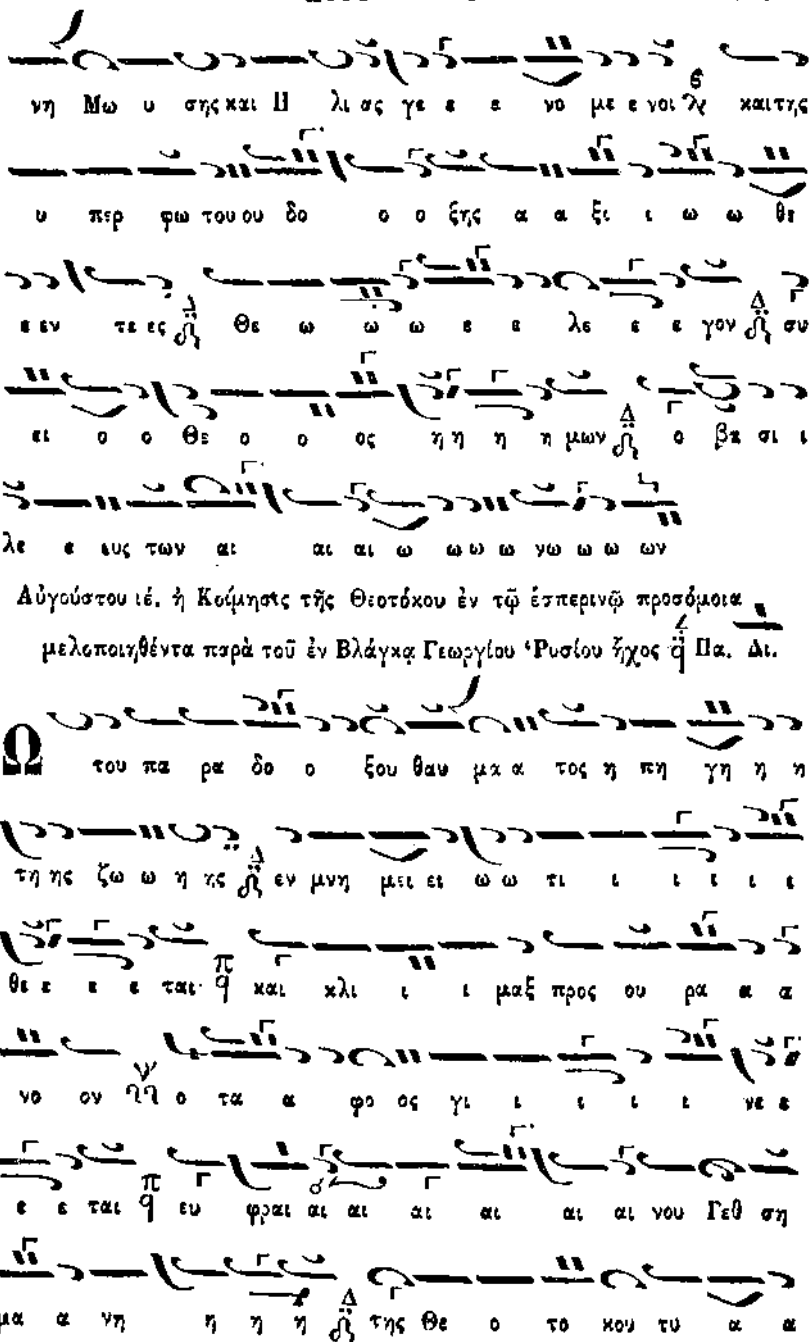 νη Μω υ σης και Η λι ας γε ε ε νο με ε νοι και της
υ περ φω του ου δο ο ο ξης α α ξι ι ω ω θε
ε εν τε ες Δ Θε ω ω ω ε ε λε ε ε γον Δ συ
ει ο ο Θε ο ο ος η η η η μων Δ ο βα σι ι
λε ε ευς των αι αι αι αι ω ω ω ω νω ω ω ων
Αὐγούστου ιέ. ἡ Κοίμησις τῆς Θεοτόκου ἐν τῷ ἑσπερινῷ προσόμοια
μελοποιηθέντα παρὰ τοῦ ἐν Βλάγκᾳ Γεωργίου Ῥυσίου ἦχος Πα. Δι.
Ω του πα ρα δο ο ξου θαυ μα α τος η πη γη η η
τη ης ζω ω η ης Δ εν μνη μει ει ω ω τι ι ι ι ι ι
θε ε ε ε ται π και κλι ι ι μαξ προς ου ρα α α
νο ον ο τα α φο ος γι ι ι ι ι νε ε
ε ε ται π ευ φραι αι αι αι αι αι αι νου Γεθ ση
μα α νη η η η Δ της Θε ο το κου το α α